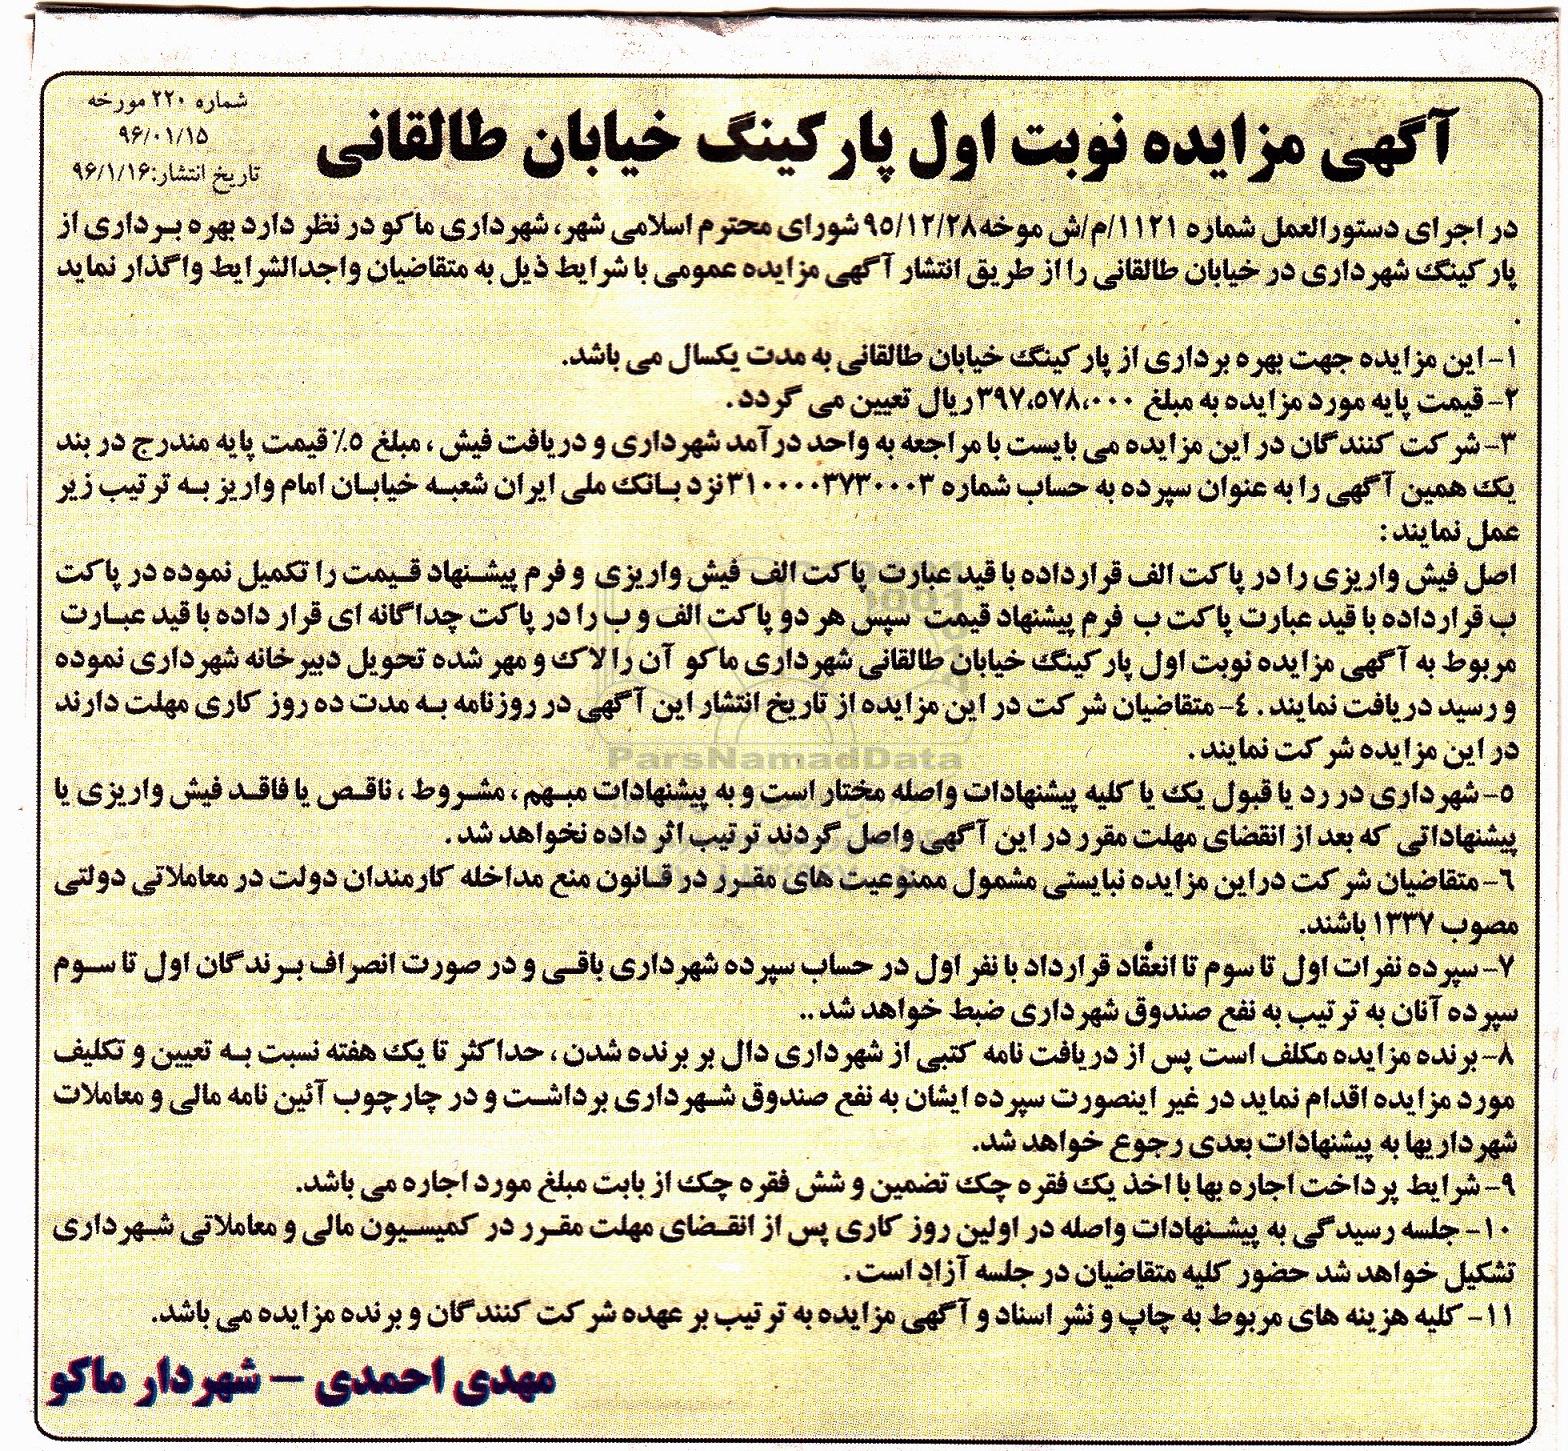 شماره ۲۲۰ مورخه
۹۶/۰۱/۱۵
تاریخ انتشار:۹۶/۱/۱۶
آگهی مزایده نوبت اول پارکینگ خیابان طالقانی
در اجرای دستورالعمل شماره ۱۱۲۱/م/ش موخه۹۵/۱۲/۲۸ شورای محترم اسلامی شهر، شهرداری ماکو در نظر دارد بهره برداری از
پارکینگ شهرداری در خیابان طالقانی را از طریق انتشار آگهی مزایده عمومی با شرایط ذیل به متقاضیان واجدالشرایط واگذار نماید
.
۱- این مزایده جهت بهره برداری از پارکینگ خیابان طالقانی به مدت یکسال می باشد.
۲- قیمت پایه مورد مزایده به مبلغ ۳۹۷،۵۷۸،۰۰۰ریال تعیین می گردد.
۳- شرکت کنندگان در این مزایده می بایست با مراجعه به واحد درآمد شهرداری و دریافت فیش ، مبلغ ۵٪ قیمت پایه مندرج در بند
یک همین آگهی را به عنوان سپرده به حساب شماره ۳۱۰۰۰۰۳۷۳۰۰۰۳ نزد بانک ملی ایران شعبه خیابان امام واریز به ترتیب زیر
عمل نمایند :
اصل فیش واریزی را در پاکت الف قرارداده با قید عبارت پاکت الف فیش واریزی و فرم پیشنهاد قیمت را تکمیل نموده در پاکت
ب قرارداده با قید عبارت پاکت ب فرم پیشنهاد قیمت سپس هر دو پاکت الف و ب را در پاکت جداگانه ای قرار داده با قید عبارت
مربوط به آگهی مزایده نوبت اول پارکینگ خیابان طالقانی شهرداری ماکو آن را لاک و مهر شده تحویل دبیرخانه شهرداری نموده
و رسید دریافت نمایند . ۴- متقاضیان شرکت در این مزایده از تاریخ انتشار این آگهی در روزنامه به مدت ده روز کاری مهلت دارند
در این مزایده شرکت نمایند .
ParsNamadData
۵- شهرداری در رد یا قبول یک یا کلیه پیشنهادات واصله مختار است و به پیشنهادات مبهم ، مشروط ، ناقص یا فاقد فیش واریزی یا
پیشنهاداتی که بعد از انقضای مهلت مقرر در این آگهی واصل گردند ترتیب اثر داده نخواهد شد .
۶- متقاضیان شرکت دراین مزایده نبایستی مشمول ممنوعیت های مقرر در قانون منع مداخله کارمندان دولت در معاملاتی دولتی
مصوب ۱۳۳۷ باشند.
۷- سپرده نفرات اول تا سوم تا انعقاد قرارداد با نفر اول در حساب سپرده شهرداری باقی و در صورت انصراف برندگان اول تا سوم
سپرده آنان به ترتیب به نفع صندوق شهرداری ضبط خواهد شد ..
۸- برنده مزایده مکلف است پس از دریافت نامه کتبی از شهرداری دال بر برنده شدن ، حداکثر تا یک هفته نسبت به تعیین و تکلیف
مورد مزایده اقدام نماید در غیر اینصورت سپرده ایشان به نفع صندوق شهرداری برداشت و در چارچوب آئین نامه مالی و معاملات
شهرداریها به پیشنهادات بعدی رجوع خواهد شد.
۹- شرایط پرداخت اجاره بها با اخذ یک فقره چک تضمین و شش فقره چک از بابت مبلغ مورد اجاره می باشد.
۱۰- جلسه رسیدگی به پیشنهادات واصله در اولین روز کاری پس از انقضای مهلت مقرر در کمیسیون مالی و معاملاتی شهرداری
تشکیل خواهد شد حضور کلیه متقاضیان در جلسه آزاد است .
۱۱- کلیه هزینه های مربوط به چاپ و نشر اسناد و آگهی مزایده به ترتیب بر عهده شرکت کنندگان و برنده مزایده می باشد.
مهدی احمدی – شهردار ماکو